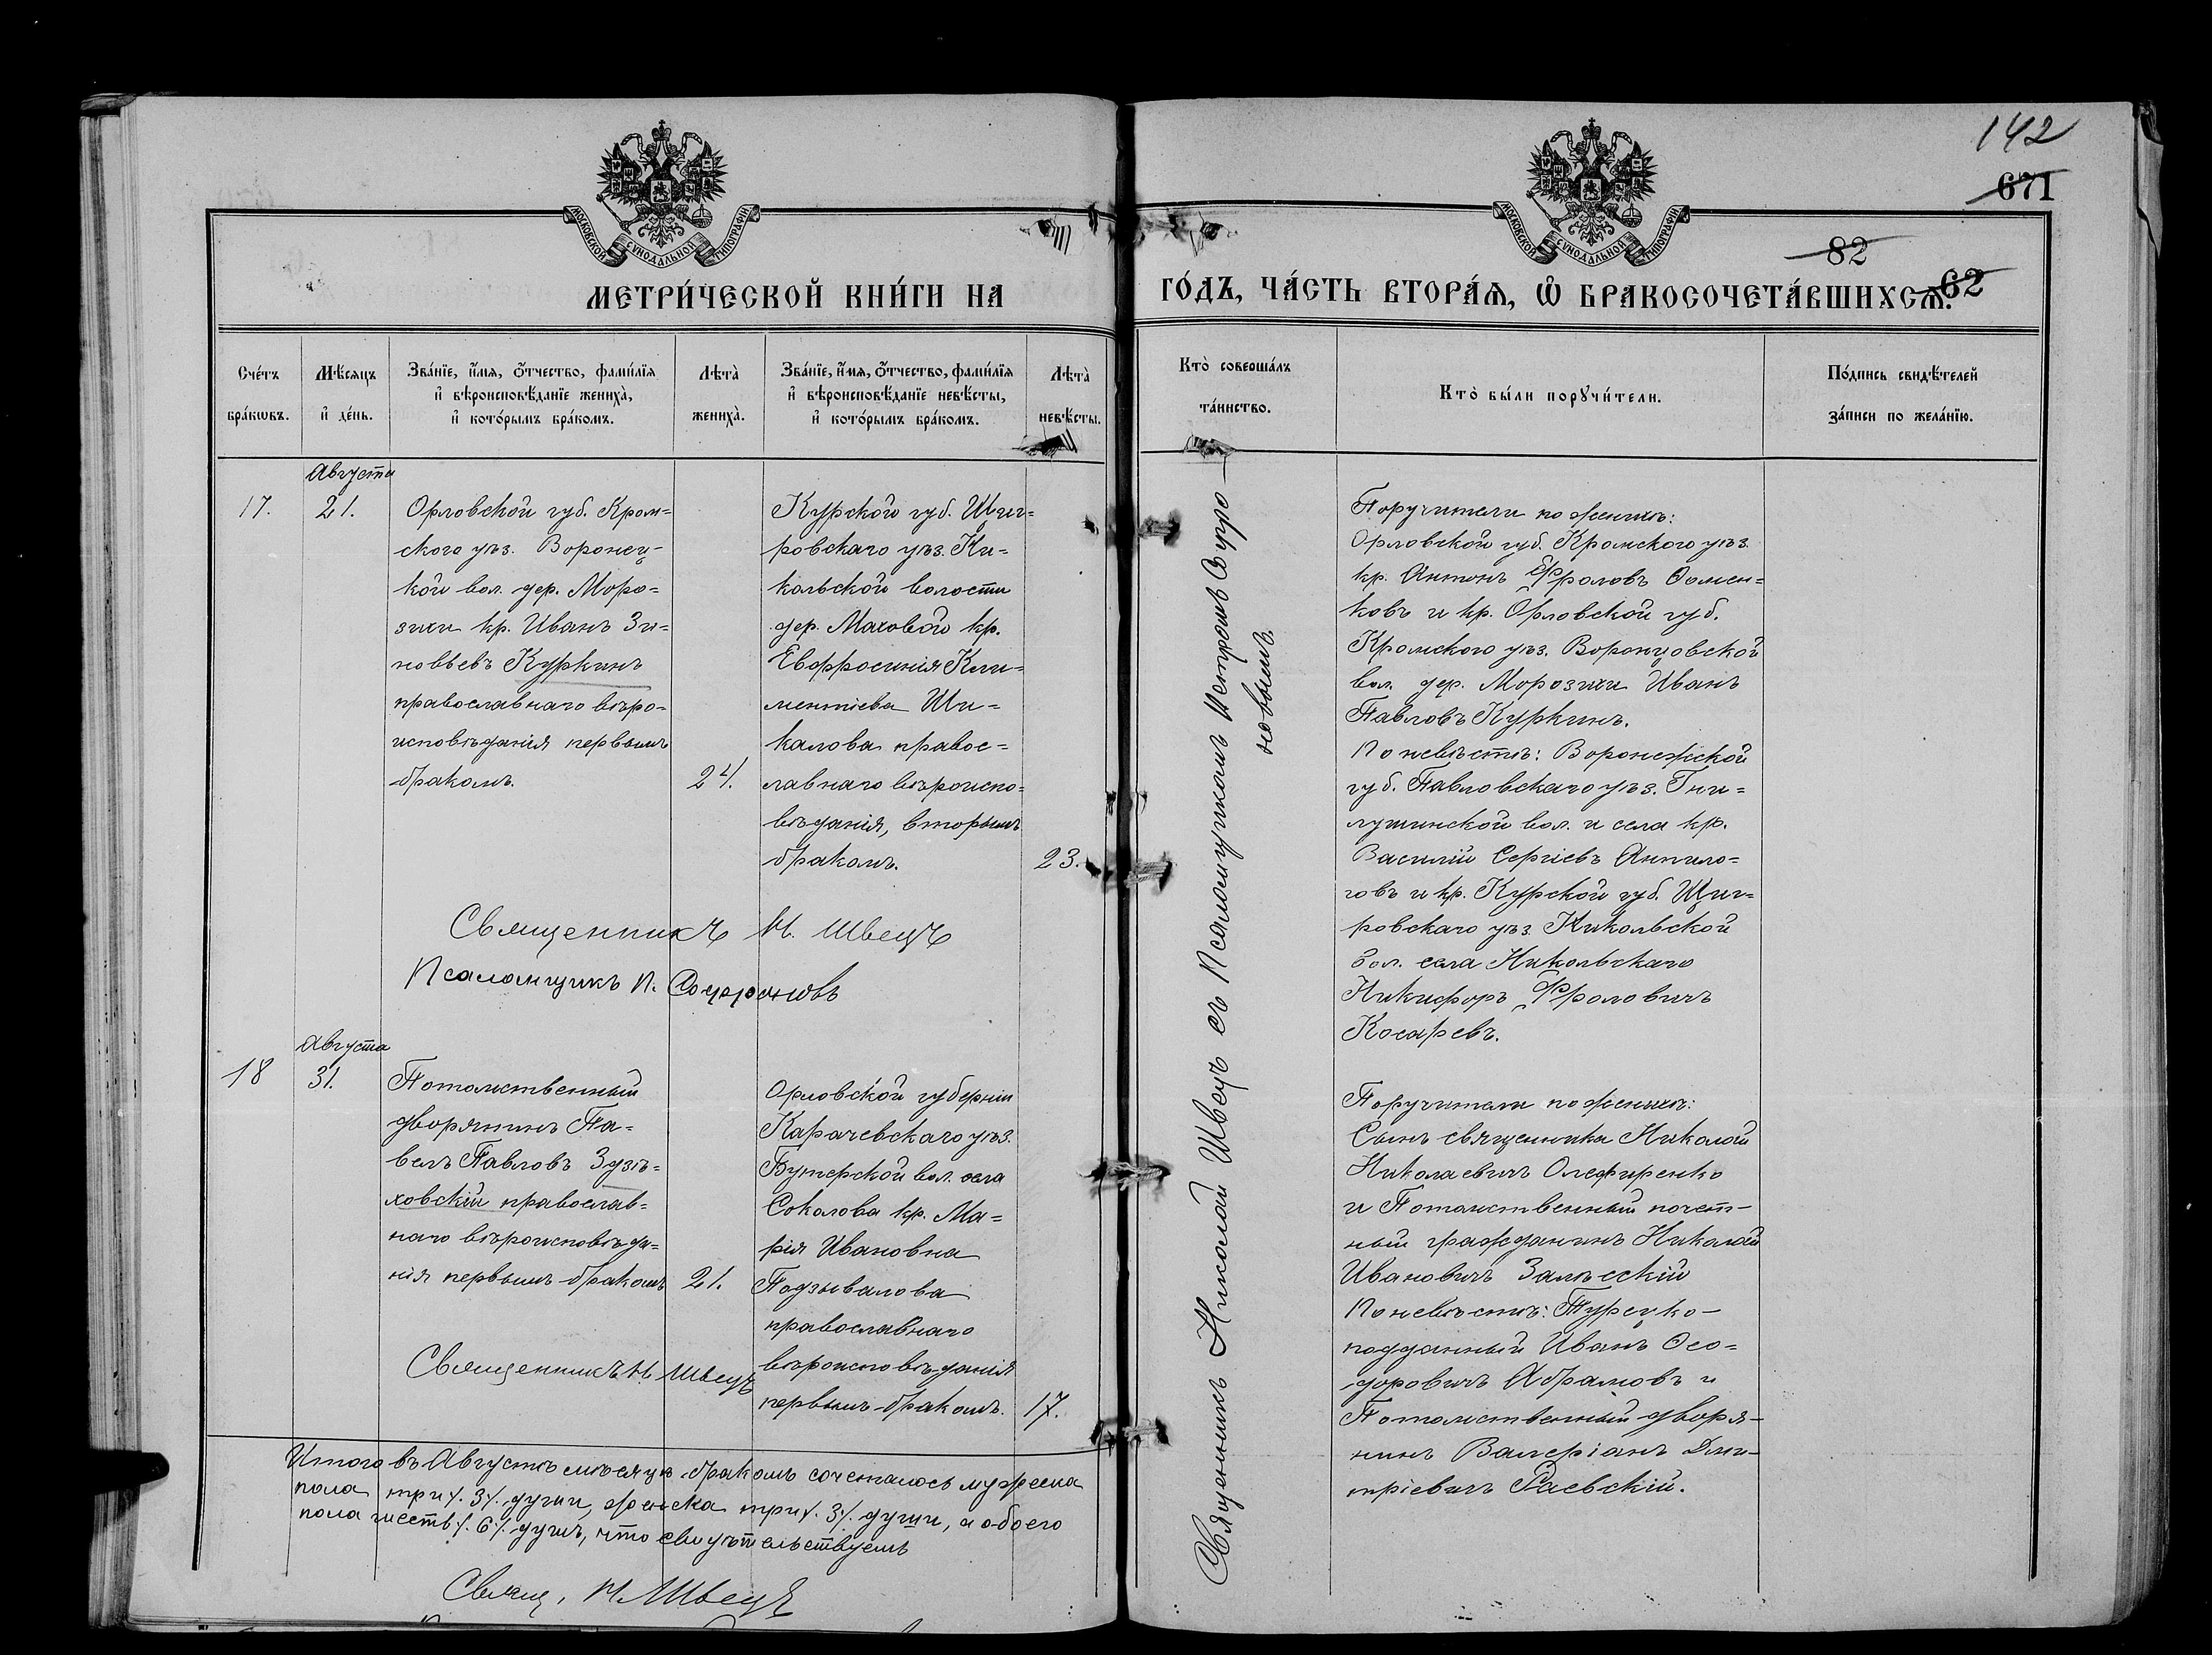 142
671
82
62
МОСКОВСКОЙ СѴНОДАЛЬНОЙ ТИПОГРАФІИ
МОСКОВСКОЙ СѴНОДАЛЬНОЙ ТИПОГРАФІИ
МЕТРИ́ЧЕСКОЙ КНИ́ГИ НА
ГО́ДЪ, ЧА́СТЬ ВТОРА́Ѧ, Ѡ҆ БРАКОСОЧЕТА́ВШИХСѦ.
Сче́тъ
бра́кѡвъ.
Мѣ́сяцъ
и҆ де́нь.
Зва́нїе, и҆́мя, Ѻ҆́тчество, фами́лїя
и҆ вѣроисповѣ́данїе жениха̀,
и҆ кото́рымъ бра́комъ.
Лѣта̀
жениха̀.
Зва́нїе, и҆́мя, Ѻ҆́тчество, фами́лїя
и҆ вѣроисповѣ́данїе невѣ́сты,
и҆ кото́рымъ бра́комъ.
Лѣта̀
невѣ́сты.
Кто̀ соверша́лъ
та́инство.
Кто̀ бы́ли порꙋчи́тели.
По́дпись свидѣ́телей
за́писи по жела́нїю.
Августа
17.
21.
Орловской губ. Кром=
ского уѣз. Воронец-
кой вол. дер. Моро=
зихи кр. Иванъ Зи=
новьевъ Куркинъ
православнаго вѣро=
исповѣданія первымъ
бракомъ.
24.
Курской губ. Щиг=
ровскаго уѣз. Ни=
кольской волости
дер. Маховой кр.
Евфросинія Кли=
ментіева Ши=
калова правос=
лавнаго вѣроиспо=
вѣданія, вторымъ
бракомъ.
23.
Священникъ Н. Швецъ
Псаломщикъ П. Софроновъ
Священникъ Николай Швецъ съ Псаломщикомъ Петромъ Софро-
новымъ.
Поручители по женихѣ:
Орловской губ. Кромского уѣз.
кр. Антонъ Фроловъ Фомен=
ковъ и кр. Орловской губ.
Кромского уѣз. Воронцовской
вол. дер. Морозихи Иванъ
Павловъ Куркинъ.
По невѣстѣ: Воронежской
губ. Павловскаго уѣз. Гни=
лушинской вол. и села кр.
Василій Сергіевъ Анпило=
говъ и кр. Курской губ. Щиг=
ровскаго уѣз. Никольской
вол. села Никольскаго
Никифоръ Фроловичъ
Косаревъ.
Августа
18
31.
Потомственный
дворянинъ Па=
велъ Павловъ Здзѣ=
ховскій православ=
наго вѣроисповѣда=
нія первымъ бракомъ
21.
Орловской губерніи
Карачевскаго уѣз.
Бутерской вол. села
Соколова кр. Ма=
рія Ивановна
Подзывалова
православнаго
вѣроисповѣданія
первымъ бракомъ.
17.
Священникъ Н. Швецъ
Поручители по женихѣ:
Сынъ священника Николай
Николаевичъ Олефиренко
и Потомственный почет-
ный гражданинъ Николай
Ивановичъ Залѣсскій
По невѣстѣ: Турецко-
подданный Иванъ Ѳео=
доровичъ Абрамовъ и
Потомственный дворя-
нинъ Валеріанъ Дми-
тріевичъ Раевскій.
Итого въ Августѣ мѣсяцѣ бракомъ сочеталось мужеска
пола три /. 3 /. души, женска три /. 3 /. души, а обоего
пола шесть /. 6 /. душъ, что свидѣтельствуемъ
Свящ. Н. Швецъ